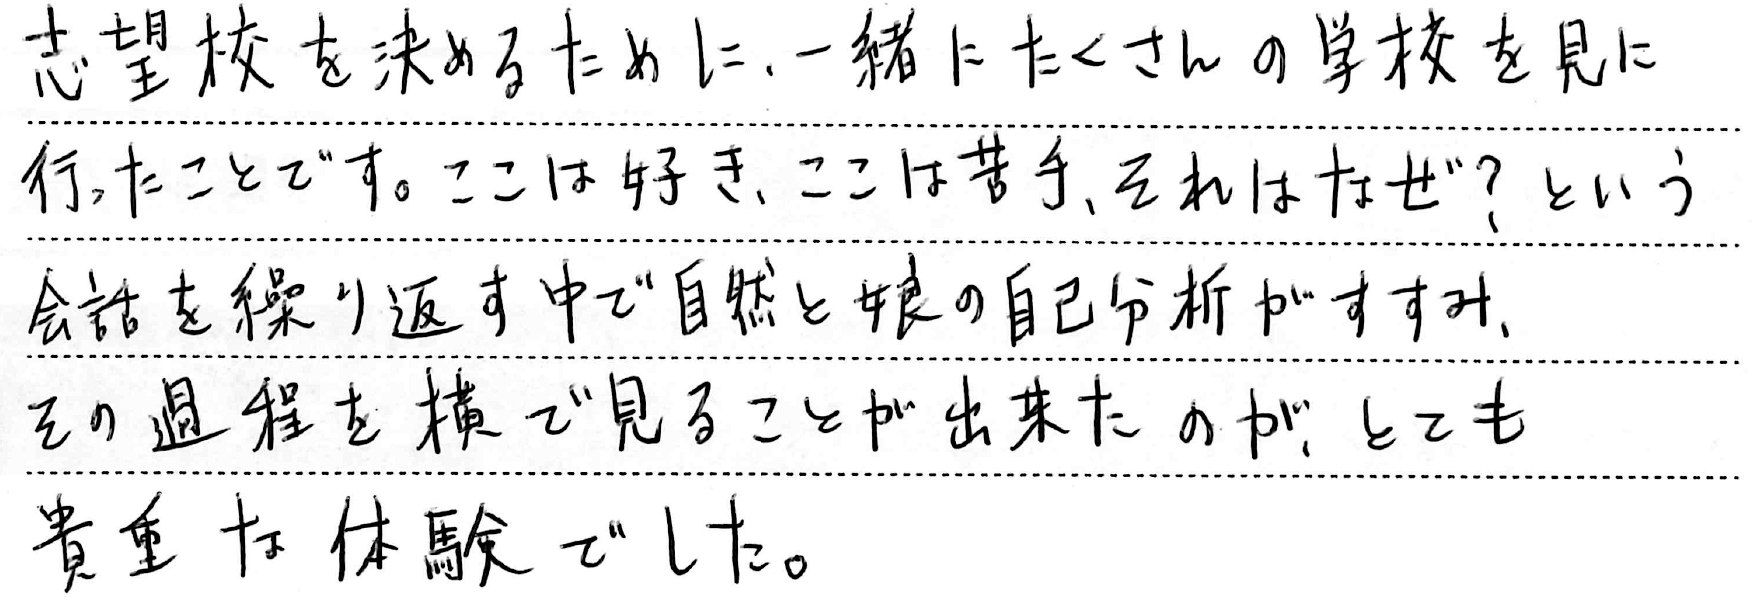 志望校を決めるために、一緒にたくさんの学校を見に
行ったことです。ここは好き、ここは苦手、それはなぜ？という
会話を繰り返す中で自然と娘の自己分析がすすみ、
その過程を横で見ることが出来たのが、とても
貴重な体験でした。